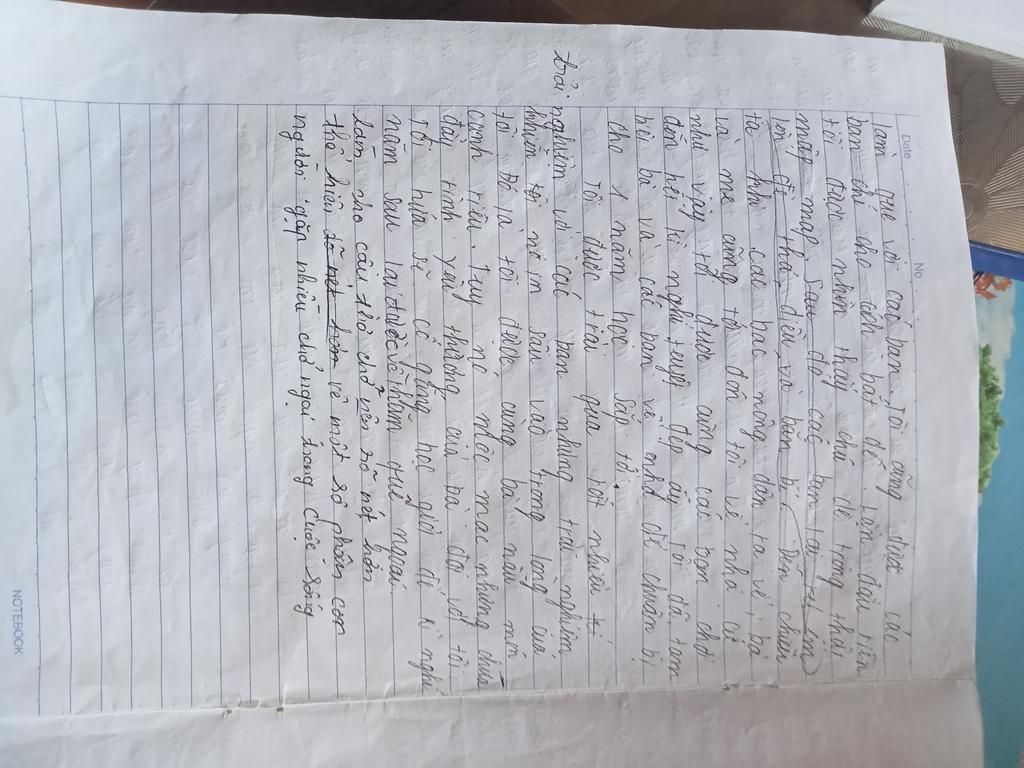 Date
No
làm quê với các bạn. Tôi cũng được các
bạn chỉ cho cách bắt dế. Lần đầu tiên
tôi được nhìn thấy chú dế trông thật
mập mạp. Sau đó các bạn trai
thả diều và bắn bi. Đến chiều
thì các bác nông dân ra về, bà
và mẹ cũng tới đón tôi về nhà. Cứ
như vậy tôi được cùng các bạn chơi
đến hết kì nghỉ tuyệt đẹp ấy. Tôi đã tạm
biệt bà và các bạn về nhà để chuẩn bị
cho 1 năm học sắp tới.
Tôi được trải qua rất nhiều
trải nghiệm với các bạn nhưng trải nghiệm
khiến tôi nhớ in sâu vào trong lòng của
tôi. Đó là tôi được cùng bà nấu món
canh riêu. Tuy mộc mạc nhưng chứa
đầy tình yêu thương của bà đối với tôi.
Tôi hứa sẽ cố gắng học giỏi để kì nghỉ
năm sau lại được về thăm quê ngoại.
làm cho câu thơ trở nên rõ nét hơn
thể hiện rõ nét hơn về một số phận con
người gặp nhiều chở ngại trong cuộc sống
NOTEBOOK